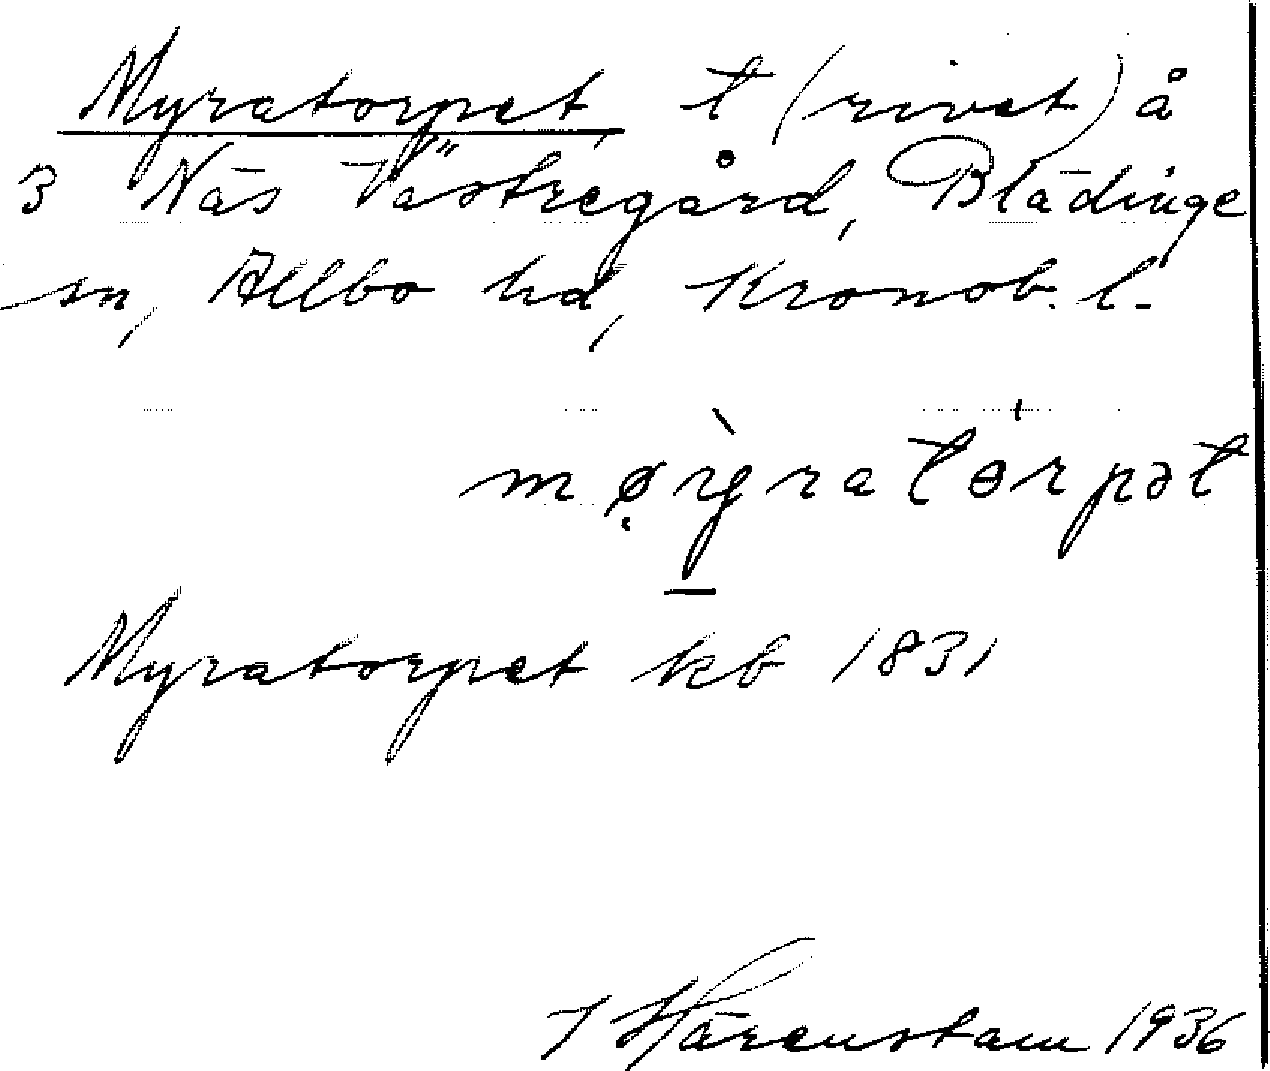 Myratorpet, t (rivet) å
3 Näs Västregård, Blädinge
sn, Allbo hd, Kronob. l.
Myratorpet kb 1831
J Härenstam 1936